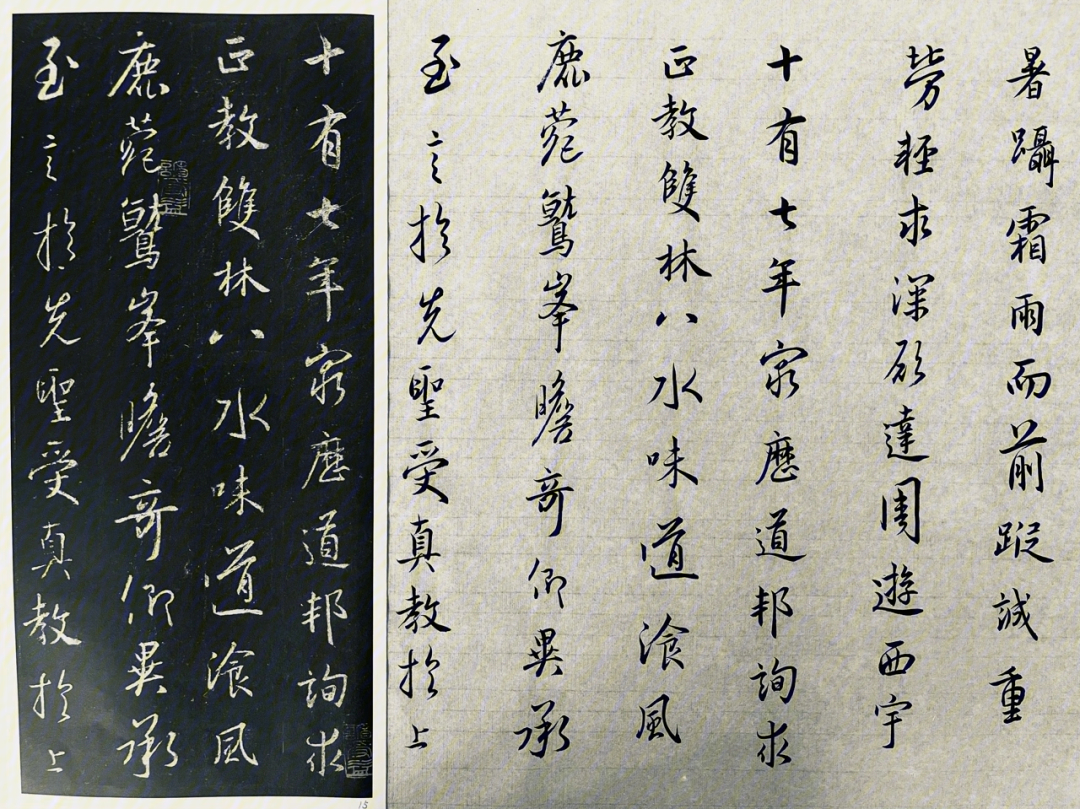 暑躡霜雨而前蹤誠重
勞輕求深願達周遊西宇
十有七年窮歷道邦詢求
正教雙林八水味道湌風
鹿菀鷲峯瞻奇仰異承
至言於先聖受真教於上
十有七年窮歷道邦詢求
正教雙林八水味道湌風
鹿菀鷲峯瞻奇仰異承
至言於先聖受真教於上
15